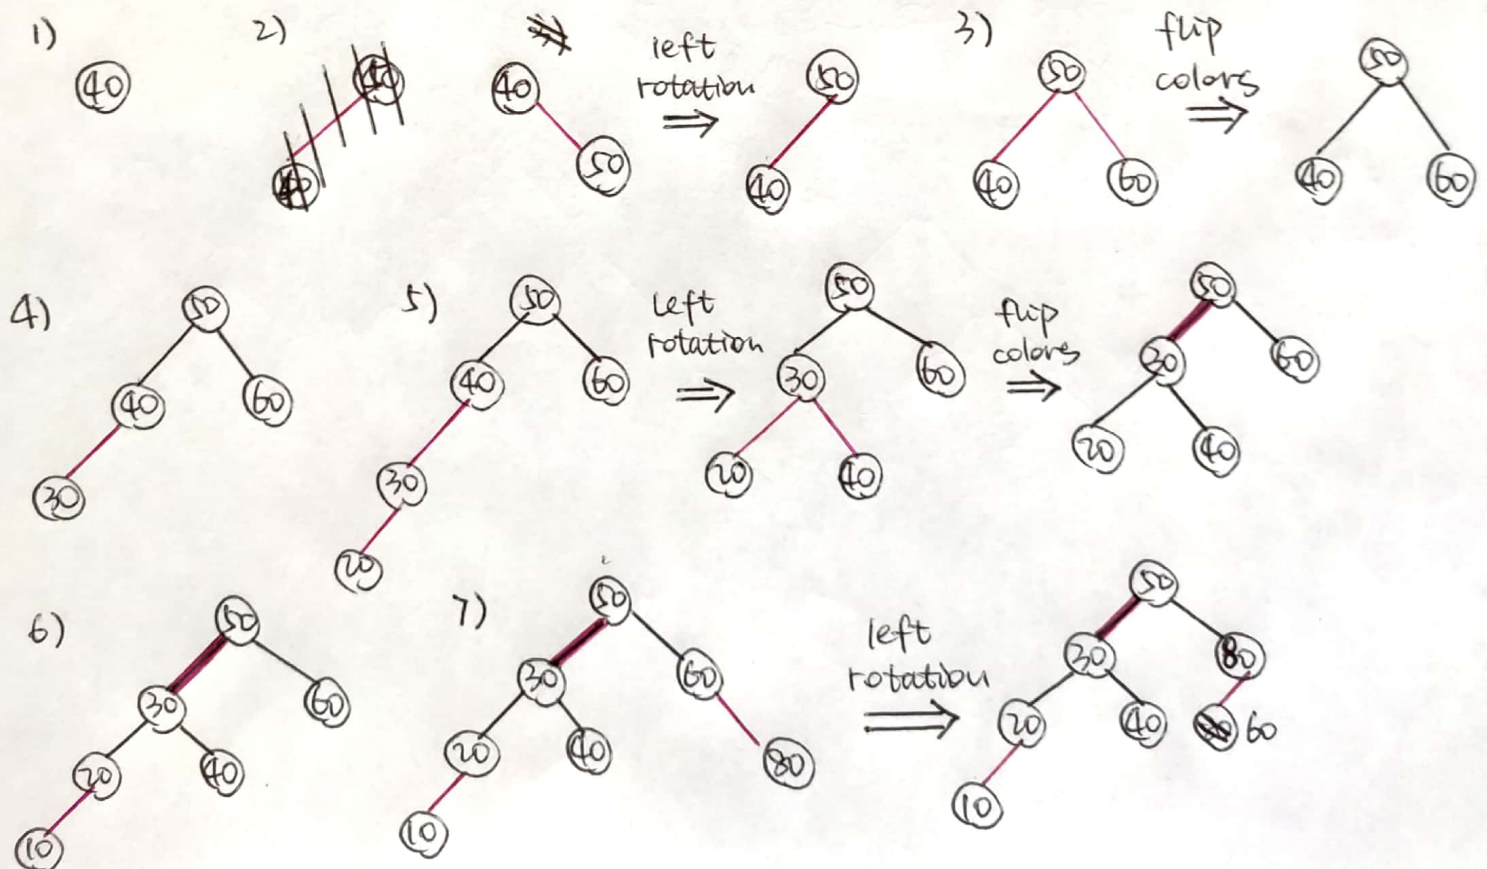 1)
40
2)
40
50
left
rotation
⇒
50
40
3)
50
40
60
flip
colors
⇒
50
40
60
4)
50
40
60
30
5)
50
40
60
30
20
left
rotation
⇒
50
30
60
20
40
flip
colors
⇒
50
30
60
20
40
6)
50
30
60
20
40
10
7)
50
30
60
20
40
80
10
left
rotation
⇒
50
30
80
20
40
60
10